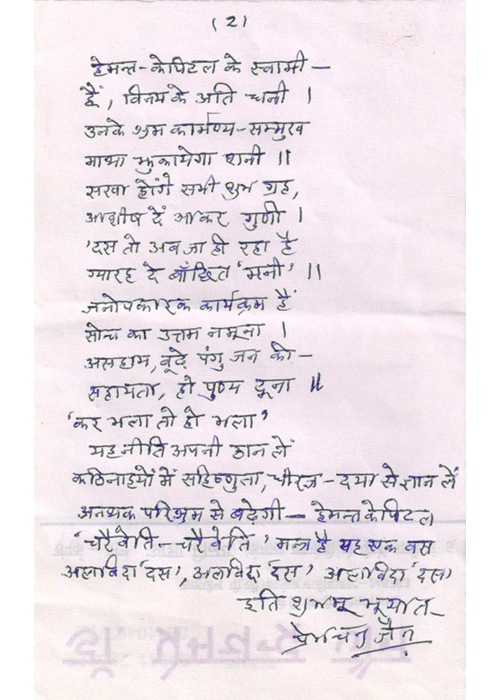 (2)
हेमन्त-केपिटल के स्वामी —
हैं, विनय के अति धनी ।
उनके श्रम कार्मण्य-सम्मुख
माथा झुकायेगा शनी ॥
सखा होंगे सभी शुभ ग्रह,
आशीष दें आकर गुणी ।
'दस तो अब जा ही रहा है
ग्यारह दे वाँछित 'मनी' ॥
जनोपकारक कार्यक्रम हैं
सोच का उत्तम नमूना ।
असहाय, बूढ़े पंगु जन की —
सहायता, हो पुण्य दूना ॥
'कर भला तो हो भला'
यह नीति अपनी ठान लें
कठिनाइयों में सहिष्णुता, धीरज - दया से ज्ञान लें
अनथक परिश्रम से बढ़ेगी — हेमन्त केपिटल
'चरैवेति - चरैवेति' मन्त्र है यह एक बस
अलविदा 'दस', अलविदा 'दस' अलविदा 'दस'
इति शुभम् भूयात्
प्रेमचन्द जैन